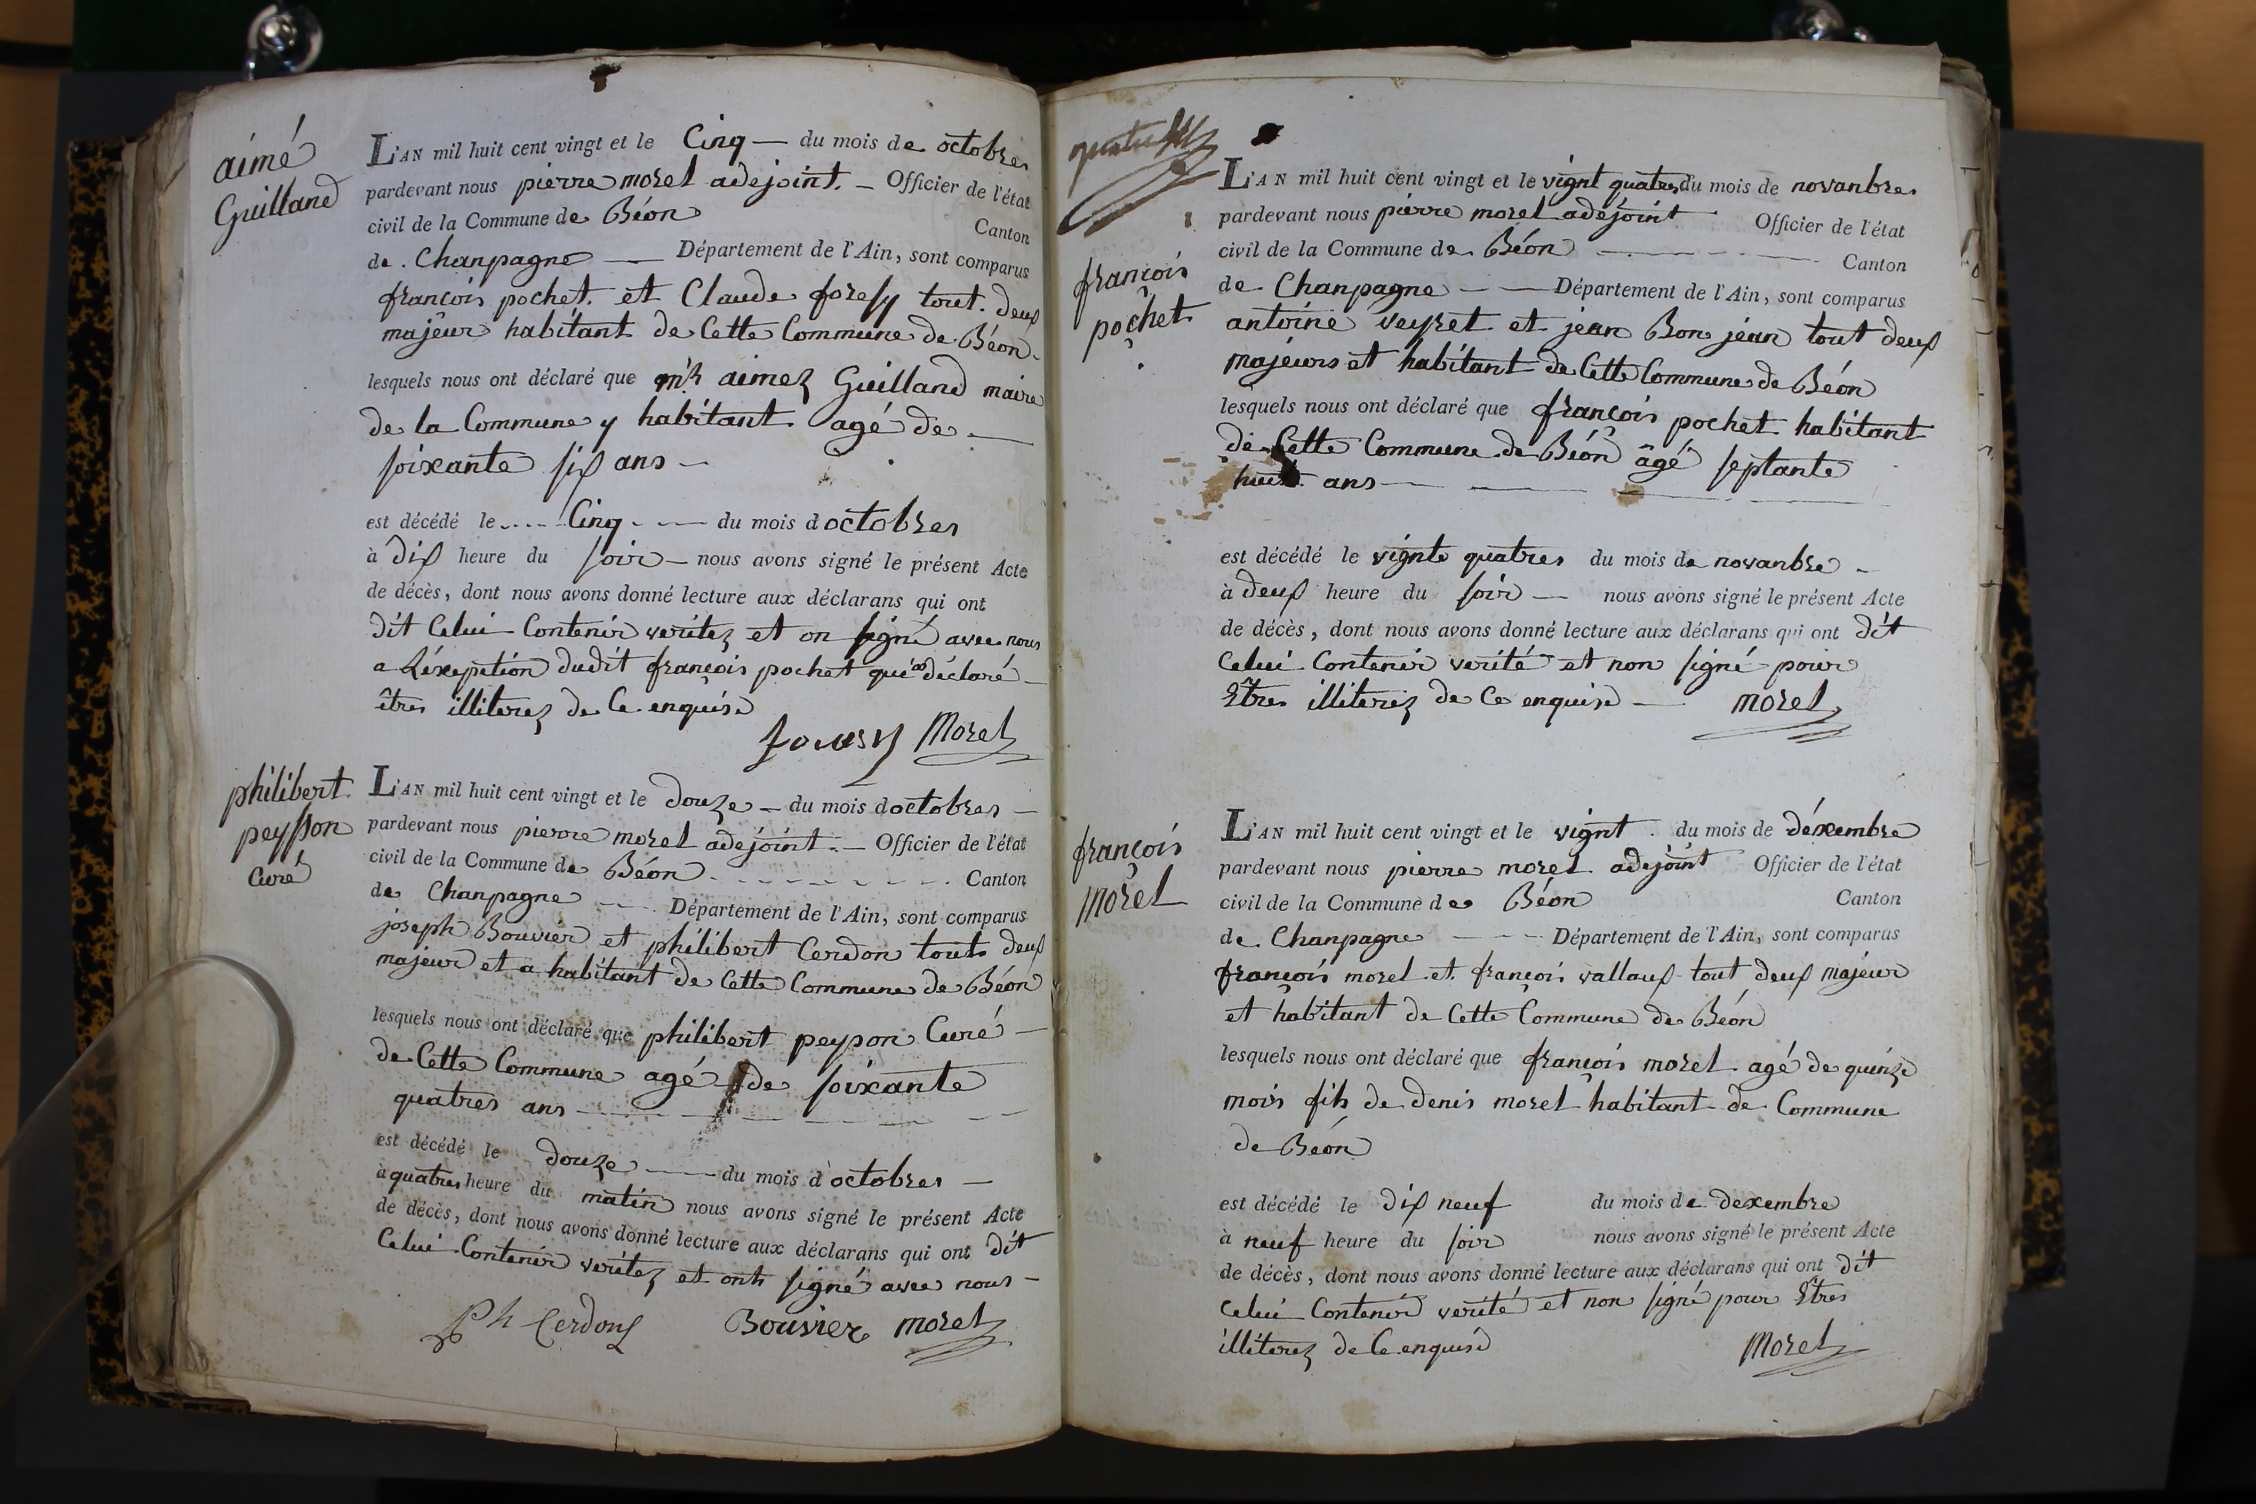 aimé
Guilland
L'AN mil huit cent vingt et le Cinq — du mois de octobres
pardevant nous pierre morel adejoint. — Officier de l'état
civil de la Commune de Béon Canton
de Chanpagne — Département de l'Ain, sont comparus
françois pochet. et Claude foresy tout. deux
majeur habitant de Cette Commune de Béon
lesquels nous ont déclaré que mr aimez Guilland maire
de la Commune y habitant agé de —
soixante six ans —
est décédé le ---- Cinq --- du mois d octobres
à dix heure du soir — nous avons signé le présent Acte
de décès, dont nous avons donné lecture aux déclarans qui ont
dit Celui Contenir veritez et on signé avec nous
a Léxeption dudit françois pochet qui a déclaré
êtres illiterez de Ce enquisd
Morel
philibert
peysson
Curé
L'AN mil huit cent vingt et le douze — du mois d octobres —
pardevant nous pierre morel adejoint. — Officier de l'état
civil de la Commune de Béon Canton
de Chanpagne — Département de l'Ain, sont comparus
joseph Bouvier et philibert Cerdon touts deux
majeur et a habitant de Cette Commune de Béon
lesquels nous ont déclaré que philibert peyson Curé —
de Cette Commune agé de soixante
quatres ans —
est décédé le douze — du mois d'octobres —
à quatres heure du matin nous avons signé le présent Acte
de décès, dont nous avons donné lecture aux déclarans qui ont dit
Celui Contenir veritez et onts signé avec nous —
Ph Cerdon Bouvier morel
françois
pochet
L'AN mil huit cent vingt et le vignt quatres du mois de novanbres
pardevant nous pierre morel adejoint Officier de l'état
civil de la Commune de Béon Canton
de Chanpagne — Département de l'Ain, sont comparus
antoine veyret et jean Bon jean tout deux
majeurs et habitant de Cette Commune de Béon
lesquels nous ont déclaré que françois pochet habitant
de Cette Commune de Béon âgé septante
huit ans —
est décédé le vignte quatres du mois de novanbre —
à deux heure du soir — nous avons signé le présent Acte
de décès, dont nous avons donné lecture aux déclarans qui ont dit
Celui Contenir verité et non signé pour
Etres illiterez de Ce enquisd — morel
françois
morel
L'AN mil huit cent vingt et le vignt du mois de déxembre
pardevant nous pierre morel adejoint Officier de l'état
civil de la Commune de Béon Canton
de Chanpagne — Département de l'Ain, sont comparus
françois morel et françois vallaux tout deux majeur
et habitant de Cette Commune de Béon
lesquels nous ont déclaré que françois morel agé de quinze
mois fils de denis morel habitant de Commune
de Béon
est décédé le dix neuf du mois de dexembre
à neuf heure du soir nous avons signé le présent Acte
de décès, dont nous avons donné lecture aux déclarans qui ont dit
celui Contenir verité et non signé pour Etres
illiterez de Ce enquisd Morel